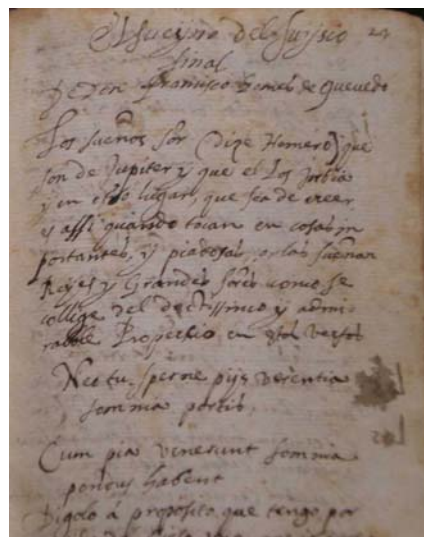 El sueño del Juiçio 24
final
De Don Francisco Gomes de Quevedo
Los sueños sor (dize Homero) que
son de Jupiter y que el los imbia
y en otro lugar, que sea de creer
y assi quando tocan en cosas in
portantes, y piadosas, o las sueñan
Reyes y Grandes sores como se
collige del doctissimo y admi
rable Propertio en estos versos
Nec tu sperne pijs venientia
somnia portis,
Cum pia venerunt somnia
pondus habent
Digolo á proposito que tengo por